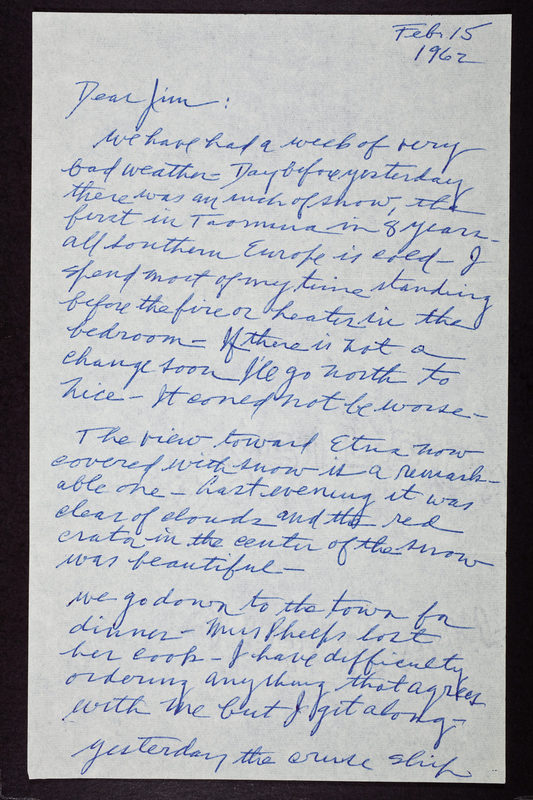 Feb. 15
1962
Dear Jim:
We have had a week of very
bad weather - Day before yesterday
there was an inch of snow, the
first in Taormina in 8 years -
all southern Europe is cold - I
spend most of my time standing
before the fire or heater in the
bedroom - If there is not a
change soon I'll go north to
Nice - It could not be worse -
The view toward Etna now
covered with snow is a remark-
able one - Last evening it was
clear of clouds and the red
crater in the center of the snow
was beautiful -
We go down to the town for
dinner - Miss Phelps lost
her cook - I have difficulty
ordering anything that agrees
with me but I get along -
Yesterday the cruise ship